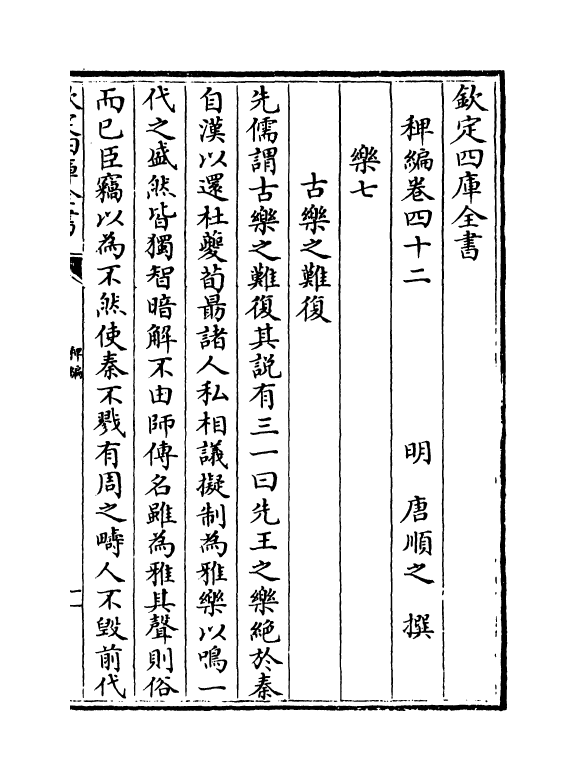 欽定四庫全書
稗編卷四十二　　　明　唐順之　撰
樂七
古樂之難復
先儒謂古樂之難復其説有三一曰先王之樂絶於秦
自漢以還杜夔荀勗諸人私相議擬制為雅樂以鳴一
代之盛然皆獨智暗解不由師傳名雖為雅其聲則俗
而已臣竊以為不然使秦不戮有周之疇人不毀前代
欽定四庫全書
稗編
一